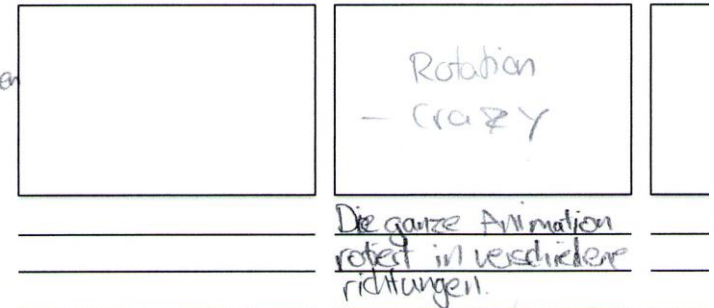 en
Rotation
- Crazy
Die ganze Animation
rotiert in verschiedene
richtungen.